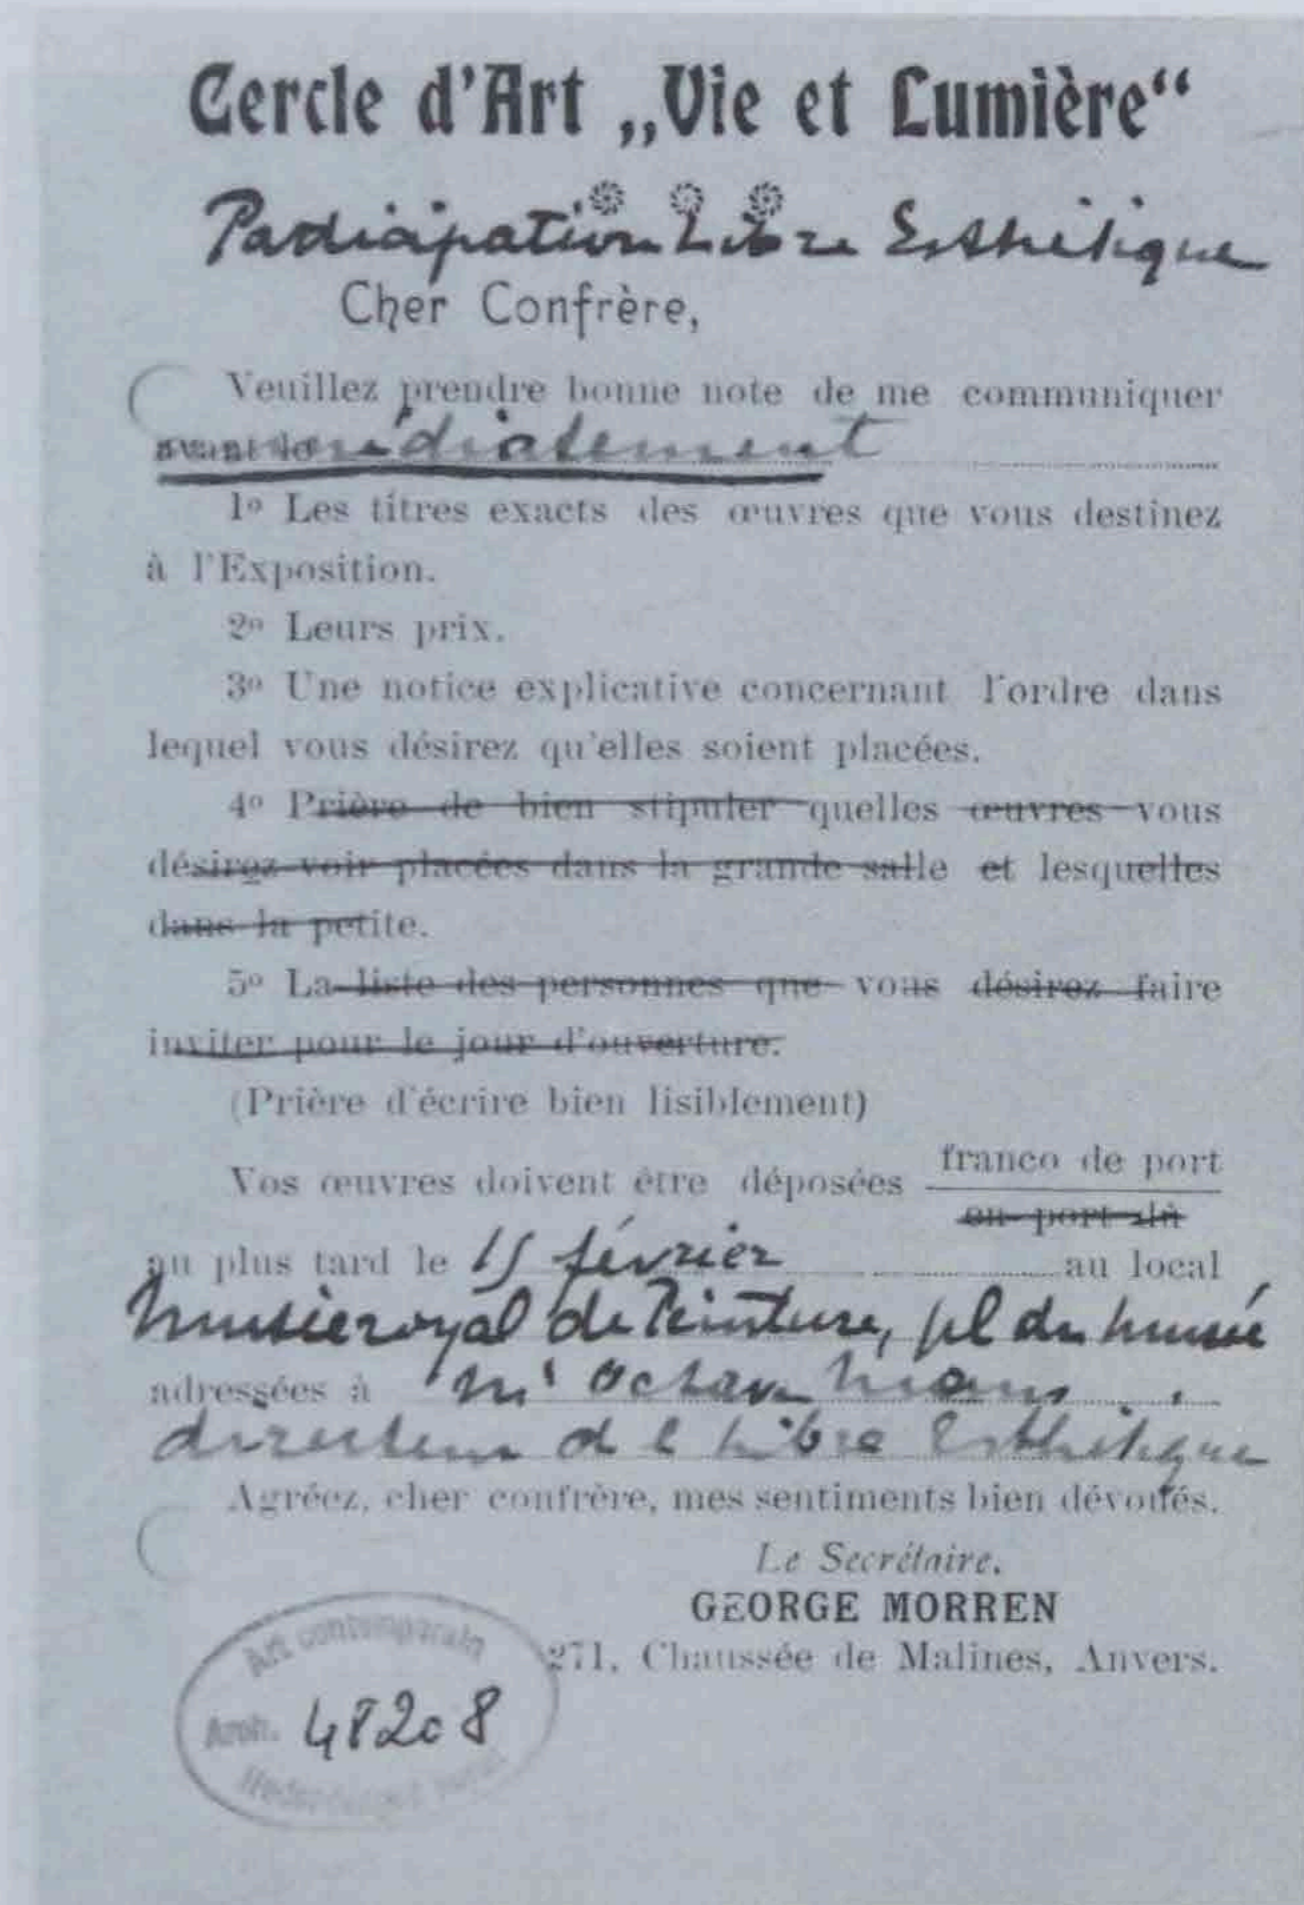 Cercle d'Art „Vie et Lumière“
Participation Libre Esthétique
Cher Confrère,
Veuillez prendre bonne note de me communiquer
avant le immédiatement
1º Les titres exacts des œuvres que vous destinez
à l'Exposition.
2º Leurs prix.
3º Une notice explicative concernant l'ordre dans
lequel vous désirez qu'elles soient placées.
4º Prière de bien stipuler quelles œuvres vous
désirez voir placées dans la grande salle et lesquelles
dans la petite.
5º La liste des personnes que vous désirez faire
inviter pour le jour d'ouverture.
(Prière d'écrire bien lisiblement)
Vos œuvres doivent être déposées franco de port
en port dû
au plus tard le 15 février au local
Musée royal de Peinture, pl du musée
adressées à Mr Octave Maus
directeur de l Libre Esthétique
Agréez, cher confrère, mes sentiments bien dévoués.
Le Secrétaire.
GEORGE MORREN
271, Chaussée de Malines, Anvers.
Art contemporain
Arch. 48208
Hedendaagse Kunst